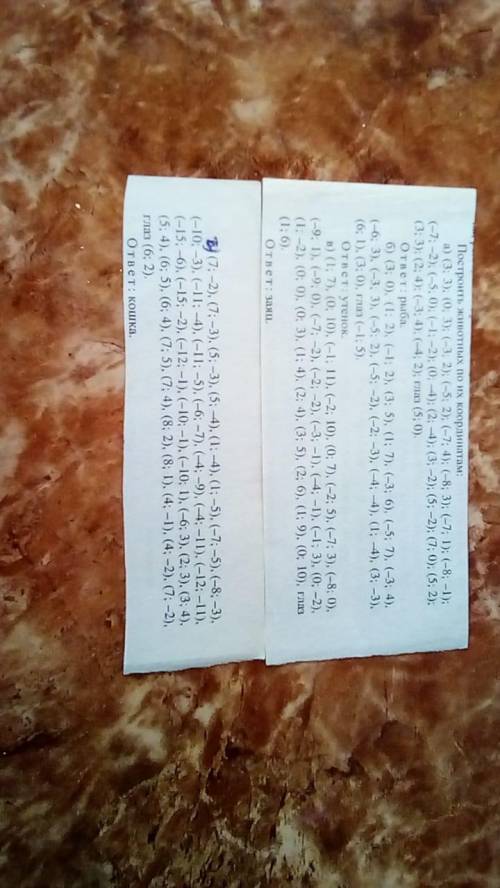 Построить животных по их координатам:
а) (3; 3), (0; 3); (-3, 2); (-5; 2); (-7; 4); (-8; 3); (-7; 1); (-8; -1);
(-7; -2); (-5, 0), (-1; -2); (0; -4); (2; -4); (3; -2); (5; -2); (7; 0); (5; 2);
(3; 3); (2; 4); (-3; 4); (-4; 2); глаз (5; 0).
Ответ: рыба.
б) (3; 0), (1; 2), (-1; 2), (3; 5), (1; 7), (-3; 6), (-5; 7), (-3; 4),
(-6; 3), (-3; 3), (-5; 2), (-5; -2), (-2; -3), (-4; -4), (1; -4), (3; -3),
(6; 1), (3; 0), глаз (-1; 5).
Ответ: утенок.
в) (1; 7), (0; 10), (-1; 11), (-2; 10), (0; 7), (-2; 5), (-7; 3), (-8; 0),
(-9; 1), (-9; 0), (-7; -2), (-2; -2), (-3; -1), (-4; -1), (-1; 3), (0; -2),
(1; -2), (0; 0), (0; 3), (1; 4), (2; 4), (3; 5), (2; 6), (1; 9), (0; 10), глаз
(1; 6).
Ответ: заяц.
(7; -2), (7; -3), (5; -3), (5; -4), (1; -4), (1; -5), (-7; -5), (-8; -3),
(-10; -3), (-11; -4), (-11; -5), (-6; -7), (-4; -9), (-4; -11), (-12; -11),
(-15; -6), (-15; -2), (-12; -1), (-10; -1), (-10; 1), (-6; 3), (2; 3), (3; 4),
(5; 4), (6; 5), (6; 4), (7; 5), (7; 4), (8; 2), (8; 1), (4; -1), (4; -2), (7; -2),
глаз (6; 2).
Ответ: кошка.